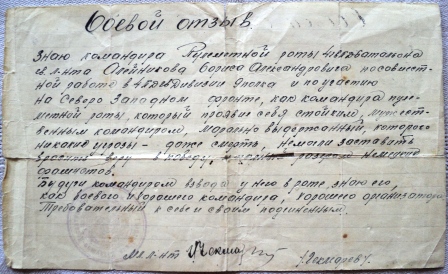 Боевой отзыв
Знаю командира Пулеметной роты 4го батальона
св. л-нта Олейникова Бориса Александровича по совмест-
ной работе в дивизии полка и по участию
на Северо Западном фронте, как командира пуле-
метной роты, который проявил себя стойким, мужест-
венным командиром, морально выдержанный, которого
никакие угрозы - даже смерть, не могли заставить
в победу,
фашистов.
Будучи командиром взвода у него в роте, знаю его,
как боевого и хорошего командира, хорошего организатора
Требовательный к себе и своим подчиненным.
Мл л-нт